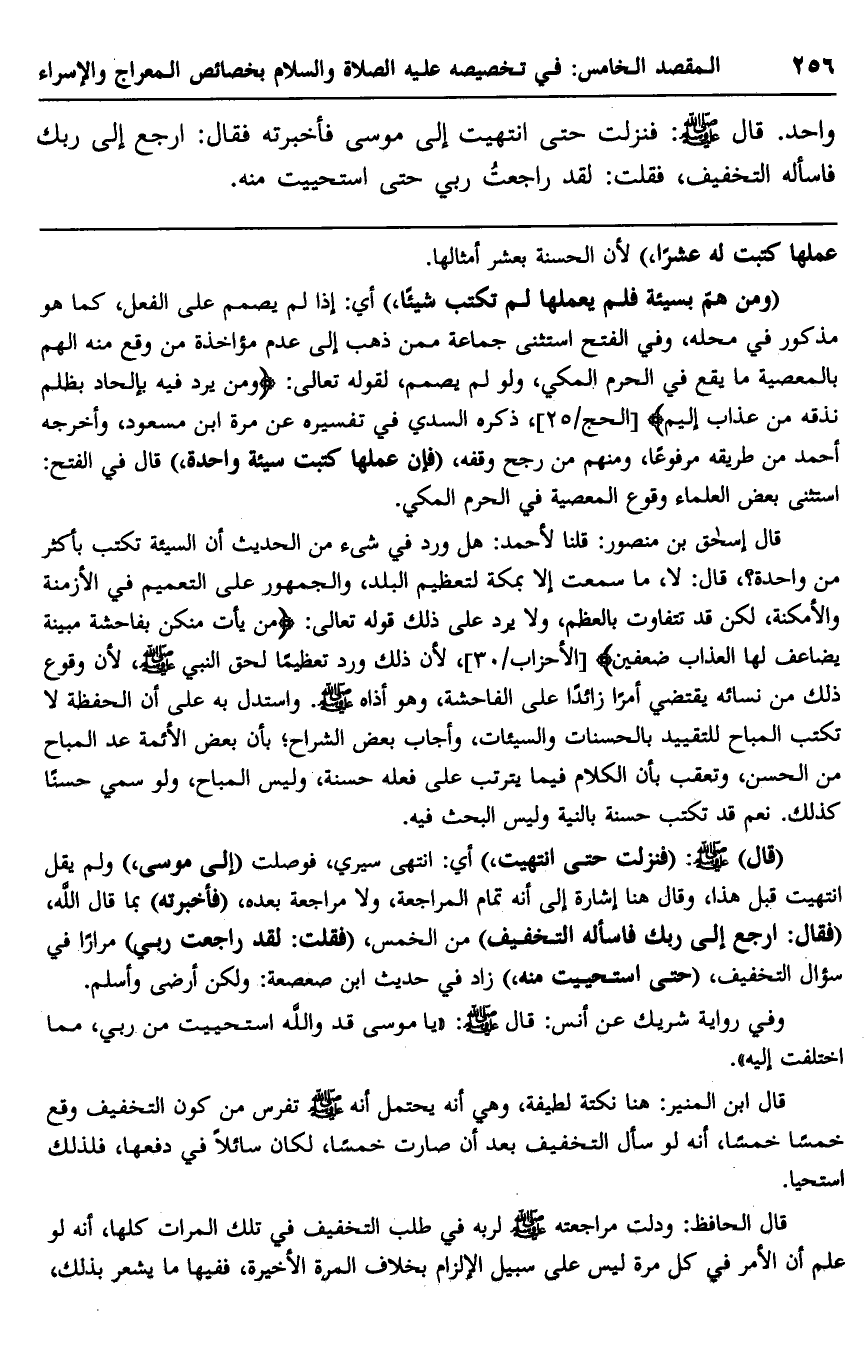 ٢٥٦ المقصد الخامس: في تخصيصه عليه الصلاة والسلام بخصائص المعراج والإسراء
واحد. قال ﷺ: فنزلت حتى انتهيت إلى موسى فأخبرته فقال: ارجع إلى ربك
فاسأله التخفيف، فقلت: لقد راجعتُ ربي حتى استحييت منه.
عملها كتبت له عشرًا،) لأن الحسنة بعشر أمثالها.
(ومن همّ بسيئة فلم يعملها لم تكتب شيئًا،) أي: إذا لم يصمم على الفعل، كما هو
مذكور في محله، وفي الفتح استثنى جماعة ممن ذهب إلى عدم مؤاخذة من وقع منه الهم
بالمعصية ما يقع في الحرم المكي، ولو لم يصمم، لقوله تعالى: ﴿ومن يرد فيه بإلحاد بظلم
نذقه من عذاب إليم﴾ [الحج/٢٥]، ذكره السدي في تفسيره عن مرة ابن مسعود، وأخرجه
أحمد من طريقه مرفوعًا، ومنهم من رجح وقفه، (فإن عملها كتبت سيئة واحدة،) قال في الفتح:
استثنى بعض العلماء وقوع المعصية في الحرم المكي.
قال إسحٰق بن منصور: قلنا لأحمد: هل ورد في شىء من الحديث أن السيئة تكتب بأكثر
من واحدة؟، قال: لا، ما سمعت إلا بمكة لتعظيم البلد، والجمهور على التعميم في الأزمنة
والأمكنة، لكن قد تتفاوت بالعظم، ولا يرد على ذلك قوله تعالى: ﴿من يأت منكن بفاحشة مبينة
يضاعف لها العذاب ضعفين﴾ [الأحزاب/٣٠]، لأن ذلك ورد تعظيمًا لحق النبي ﷺ، لأن وقوع
ذلك من نسائه يقتضي أمرًا زائدًا على الفاحشة، وهو أذاه ﷺ. واستدل به على أن الحفظة لا
تكتب المباح للتقييد بالحسنات والسيئات، وأجاب بعض الشراح؛ بأن بعض الأئمة عد المباح
من الحسن، وتعقب بأن الكلام فيما يترتب على فعله حسنة، وليس المباح، ولو سمي حسنًا
كذلك. نعم قد تكتب حسنة بالنية وليس البحث فيه.
(قال) ﷺ: (فنزلت حتى انتهيت،) أي: انتهى سيري، فوصلت (إلى موسى،) ولم يقل
انتهيت قبل هذا، وقال هنا إشارة إلى أنه تمام المراجعة، ولا مراجعة بعده، (فأخبرته) بما قال اللَّه،
(فقال: ارجع إلى ربك فاسأله التخفيف) من الخمس، (فقلت: لقد راجعت ربي) مرارًا في
سؤال التخفيف، (حتى استحييت منه،) زاد في حديث ابن صعصعة: ولكن أرضى وأسلم.
وفي رواية شريك عن أنس: قال ﷺ: «يا موسى قد واللَّه استحييت من ربي، مما
اختلفت إليه».
قال ابن المنير: هنا نكتة لطيفة، وهي أنه يحتمل أنه ﷺ تفرس من كون التخفيف وقع
خمسًا خمسًا، أنه لو سأل التخفيف بعد أن صارت خمسًا، لكان سائلاً في دفعها، فلذلك
استحيا.
قال الحافظ: ودلت مراجعته ﷺ لربه في طلب التخفيف في تلك المرات كلها، أنه لو
علم أن الأمر في كل مرة ليس على سبيل الإلزام بخلاف المرة الأخيرة، ففيها ما يشعر بذلك،